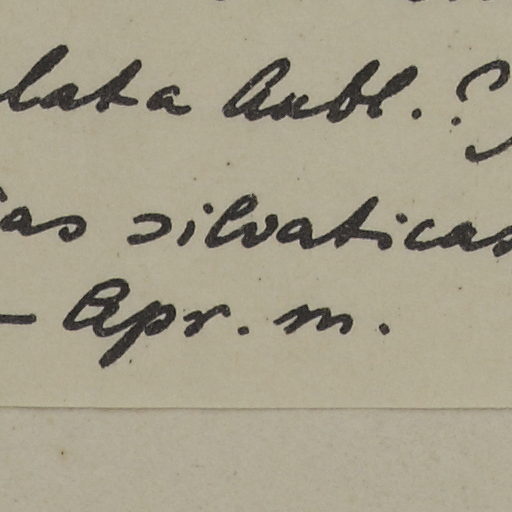 lata Aubl. ?)
ias silvaticas
– Apr. m.